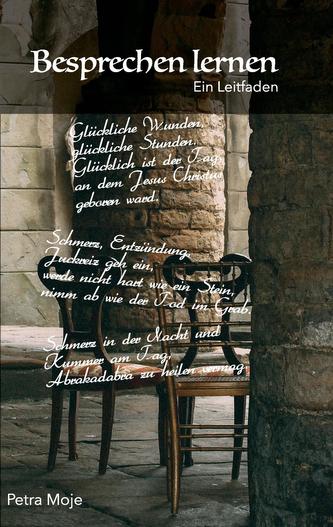 Besprechen lernen
Ein Leitfaden
Glückliche Wunden,
glückliche Stunden,
Glücklich ist der Tag,
an dem Jesus Christus
geboren ward.
Schmerz, Entzündung,
Juckreiz geh ein,
werde nicht hart wie ein Stein,
nimm ab wie der Tod im Grab.
Schmerz in der Nacht und
Kummer am Tag,
Abrakadabra zu heilen vermag.
Petra Moje